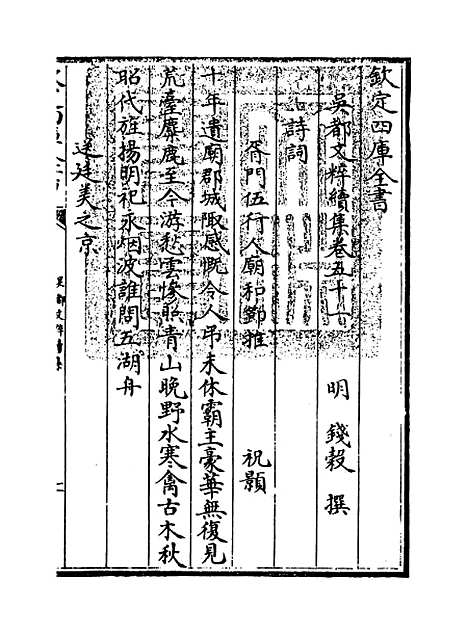 欽定四庫全書
吳都文粹續集卷五十一
明 錢榖 撰
詩詞
胥門伍行人廟和鄭雅
祝顥
十年遺廟郡城陬感慨令人弔未休霸主豪華無復見
荒臺麋鹿至今游愁雲慘䀫青山晩野水寒禽古木秋
昭代旌揚明祀永烟波誰問五湖舟
送廷美之京
吳都文粹續集